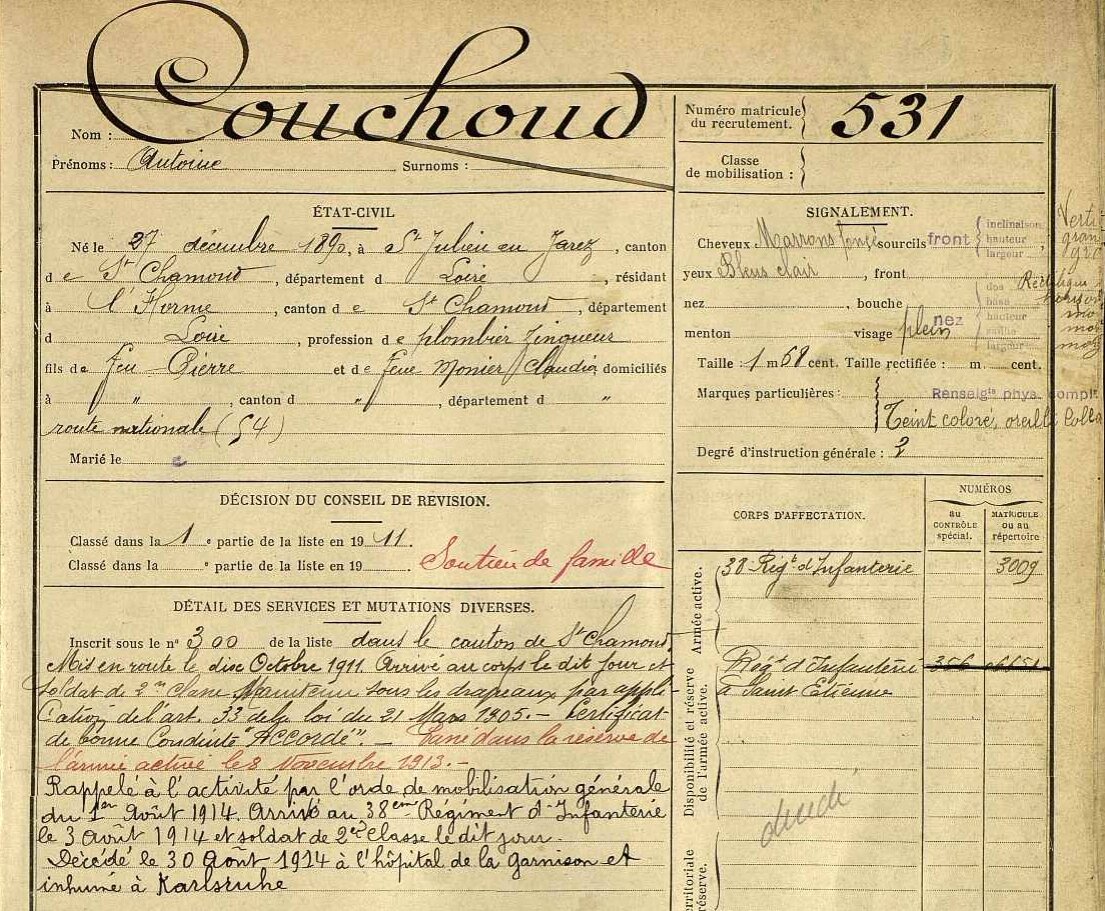 Couchoud
Nom :
Prénoms : Antoine Surnoms :
Numéro matricule du recrutement. 531
Classe de mobilisation :
ÉTAT-CIVIL
Né le 27 décembre 1890, à St Julien en Jarez, canton
de St Chamond, département d Loire, résidant
à l'Horme, canton de St Chamond, département
d Loire, profession de plombier Zingueur
fils de feu Pierre et de feue Monier Claudia domiciliés
à " , canton d " , département d "
route nationale (54)
Marié le
SIGNALEMENT.
Cheveux Marrons foncé sourcils front inclinaison hauteur largeur Verti gran
yeux Bleus clair, front
nez , bouche dos base hauteur saillie largeur Rectiligne
menton visage plein nez
Taille : 1 m 68 cent. Taille rectifiée : m. cent.
Marques particulières : Renseigts phys. compl.
Teint coloré, oreille
Degré d'instruction générale : 2
DÉCISION DU CONSEIL DE REVISION.
Classé dans la 1 e partie de la liste en 1911.
Classé dans la e partie de la liste en 19 Soutien de famille
CORPS D'AFFECTATION.
NUMÉROS
au CONTRÔLE spécial.
MATRICULE ou au répertoire
Armée active.
38 Régt d'Infanterie 3009
Disponibilité et réserve de l'armée active.
Régt d'Infanterie
à Saint Etienne
erritoriale
réserve.
DÉTAIL DES SERVICES ET MUTATIONS DIVERSES.
Inscrit sous le n° 300 de la liste dans le canton de St Chamond.
Mis en route le dix Octobre 1911. Arrivé au corps le dit jour et
soldat de 2me classe. Maintenu sous les drapeaux par appli-
cation de l'art. 33 de la loi du 21 Mars 1905.- Certificat
de bonne Conduite "ACCORDÉ".- Passé dans la réserve de
l'armée active le 8 Novembre 1913.-
Rappelé à l'activité par l'orde de mobilisation générale
du 1er Août 1914. Arrivé au 38eme Régiment d'Infanterie
le 3 Août 1914 et soldat de 2e Classe le dit jour.
Décédé le 30 Août 1914 à l'hôpital de la garnison et
inhumé à Karlsruhe